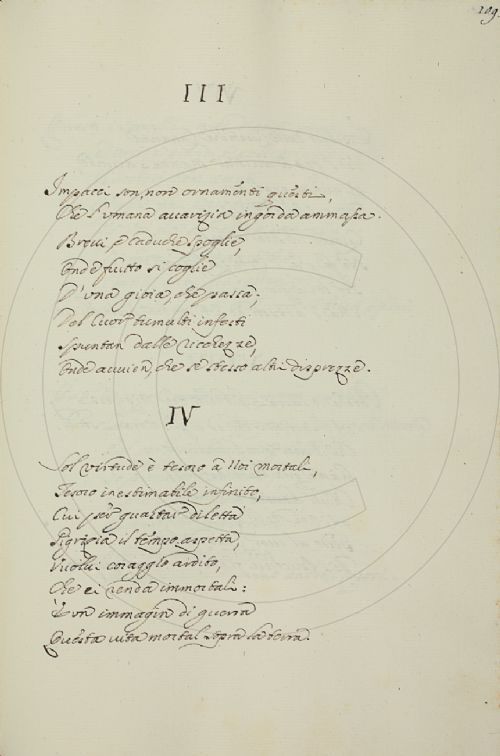 199.
III
Impacci son, non ornamenti questi,
Che l'umana avarizia ingorda ammassa.
Brevi, e caduche spoglie,
Onde frutto si coglie
D'una gioia, che passa;
Sol cuori tumulti infesti
Spuntan dalle ricchezze,
Onde avvien, che se stesso altri disprezze.
IV
Sol virtude è tesoro a Noi mortali,
Tesoro inestimabile infinito,
Cui per quastar diletta
Pigrizia il tempo aspetta,
Vuolci coraggio ardito,
Che ei renda immortali:
È un immagin di guerra
Questa vita mortal sopra la terra.